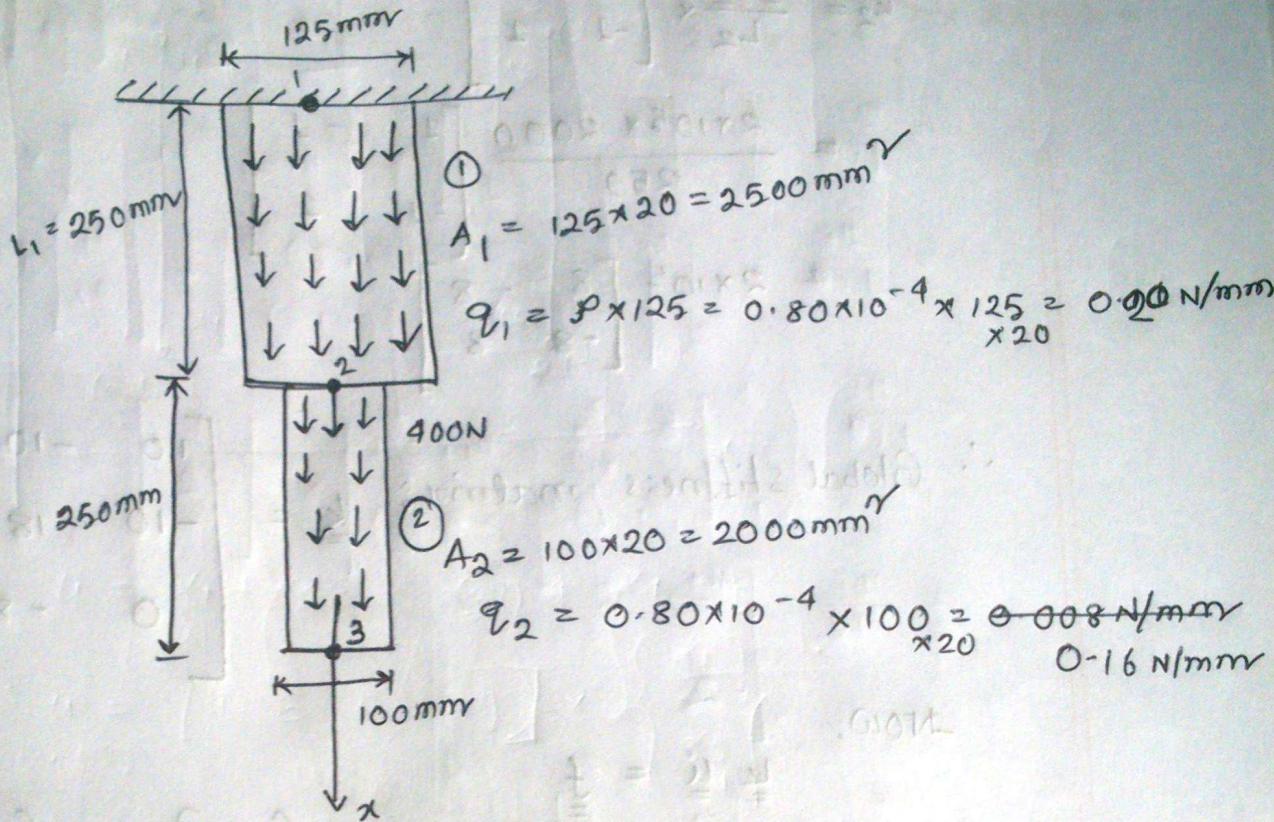 125mm
1
L₁ = 250mm
①
A₁ = 125×20 = 2500mm²
q₁ = ρ×125 = 0.80×10⁻⁴ × 125 = 0.20 N/mm
×20
2
400N
250mm
②
A₂ = 100×20 = 2000mm²
q₂ = 0.80×10⁻⁴ × 100 = 0.008 N/mm
×20
0.16 N/mm
3
100mm
x